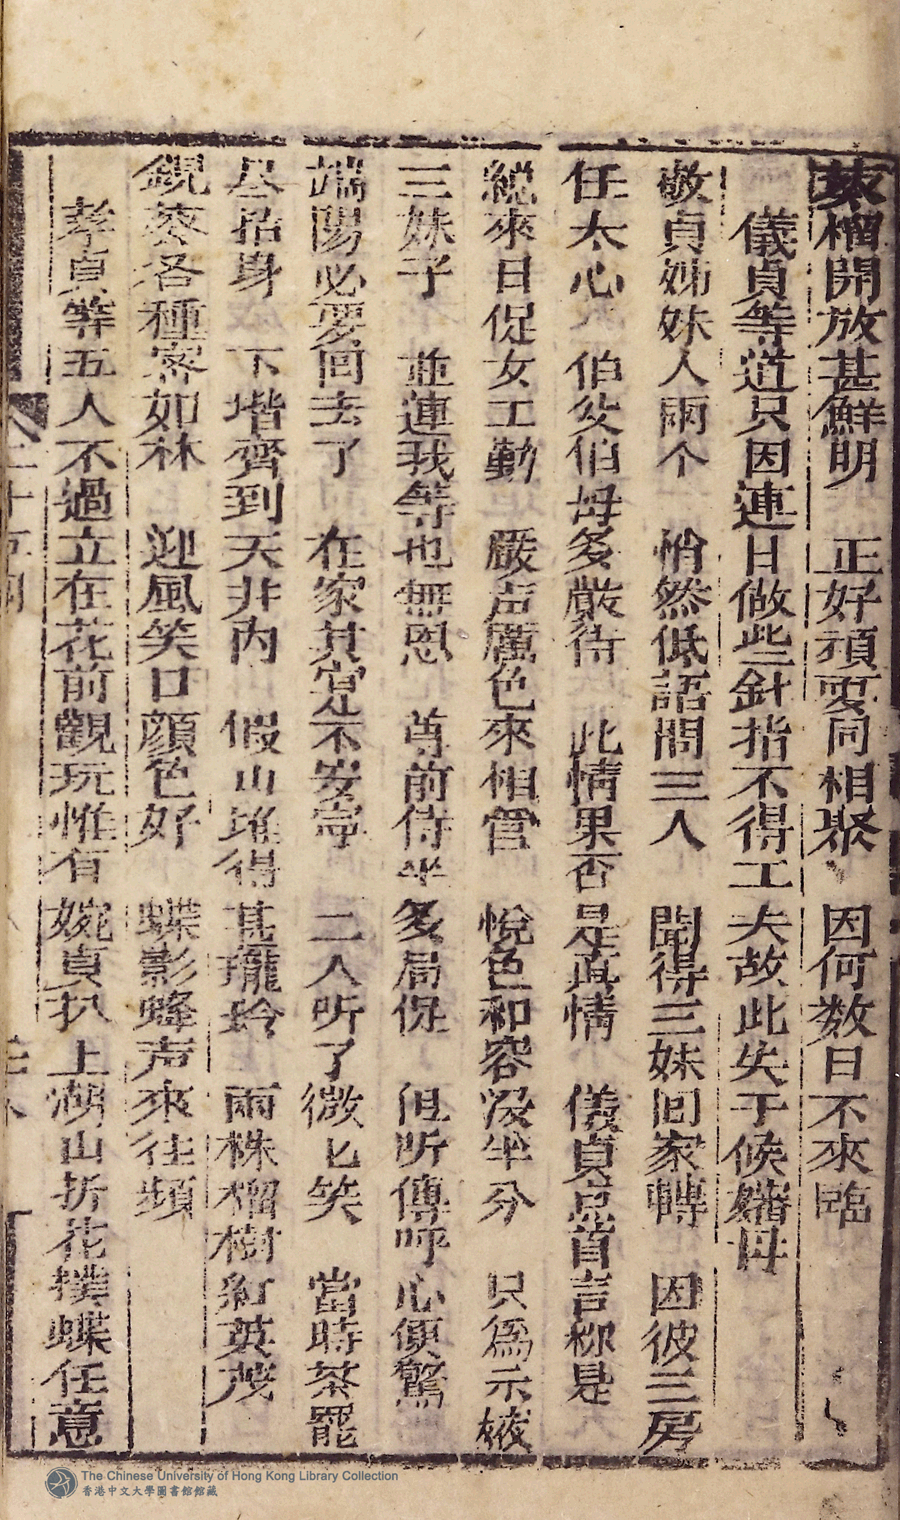 葵榴開放甚鮮明　正好頑耍同相聚　因何数日不來臨
儀貞等道只因連日做些針指不得工夫故此失于候嬸母
敬貞姊妹人兩个　悄然低語問三人　聞得三妹囬家轉　因彼三房
任太心　伯父伯母多嚴待　此情果否是真情　儀貞点首言称是
総來日促女工勤　嚴声厲色來相管　悅色和容没半分　只為示
三妹子　並連我等也無恩　尊前侍坐多局促　但听傳呼心便驚
端陽必要囬去了　在家其寔不安寧　二人听了微匕笑　當時茶罷
尽抬身　下堦齊到天井内　假山堆得甚瓏玲　兩株榴樹紅英茂
鋭葵各種密如林　迎風笑口顔色好　蝶影蜂声來往頻
孝貞等五人不過立在花前觀玩惟有婉貞扒上湖山折花撲蝶任意
二十五囬
The Chinese University of Hong Kong Library Collection
香港中文大學圖書館館藏